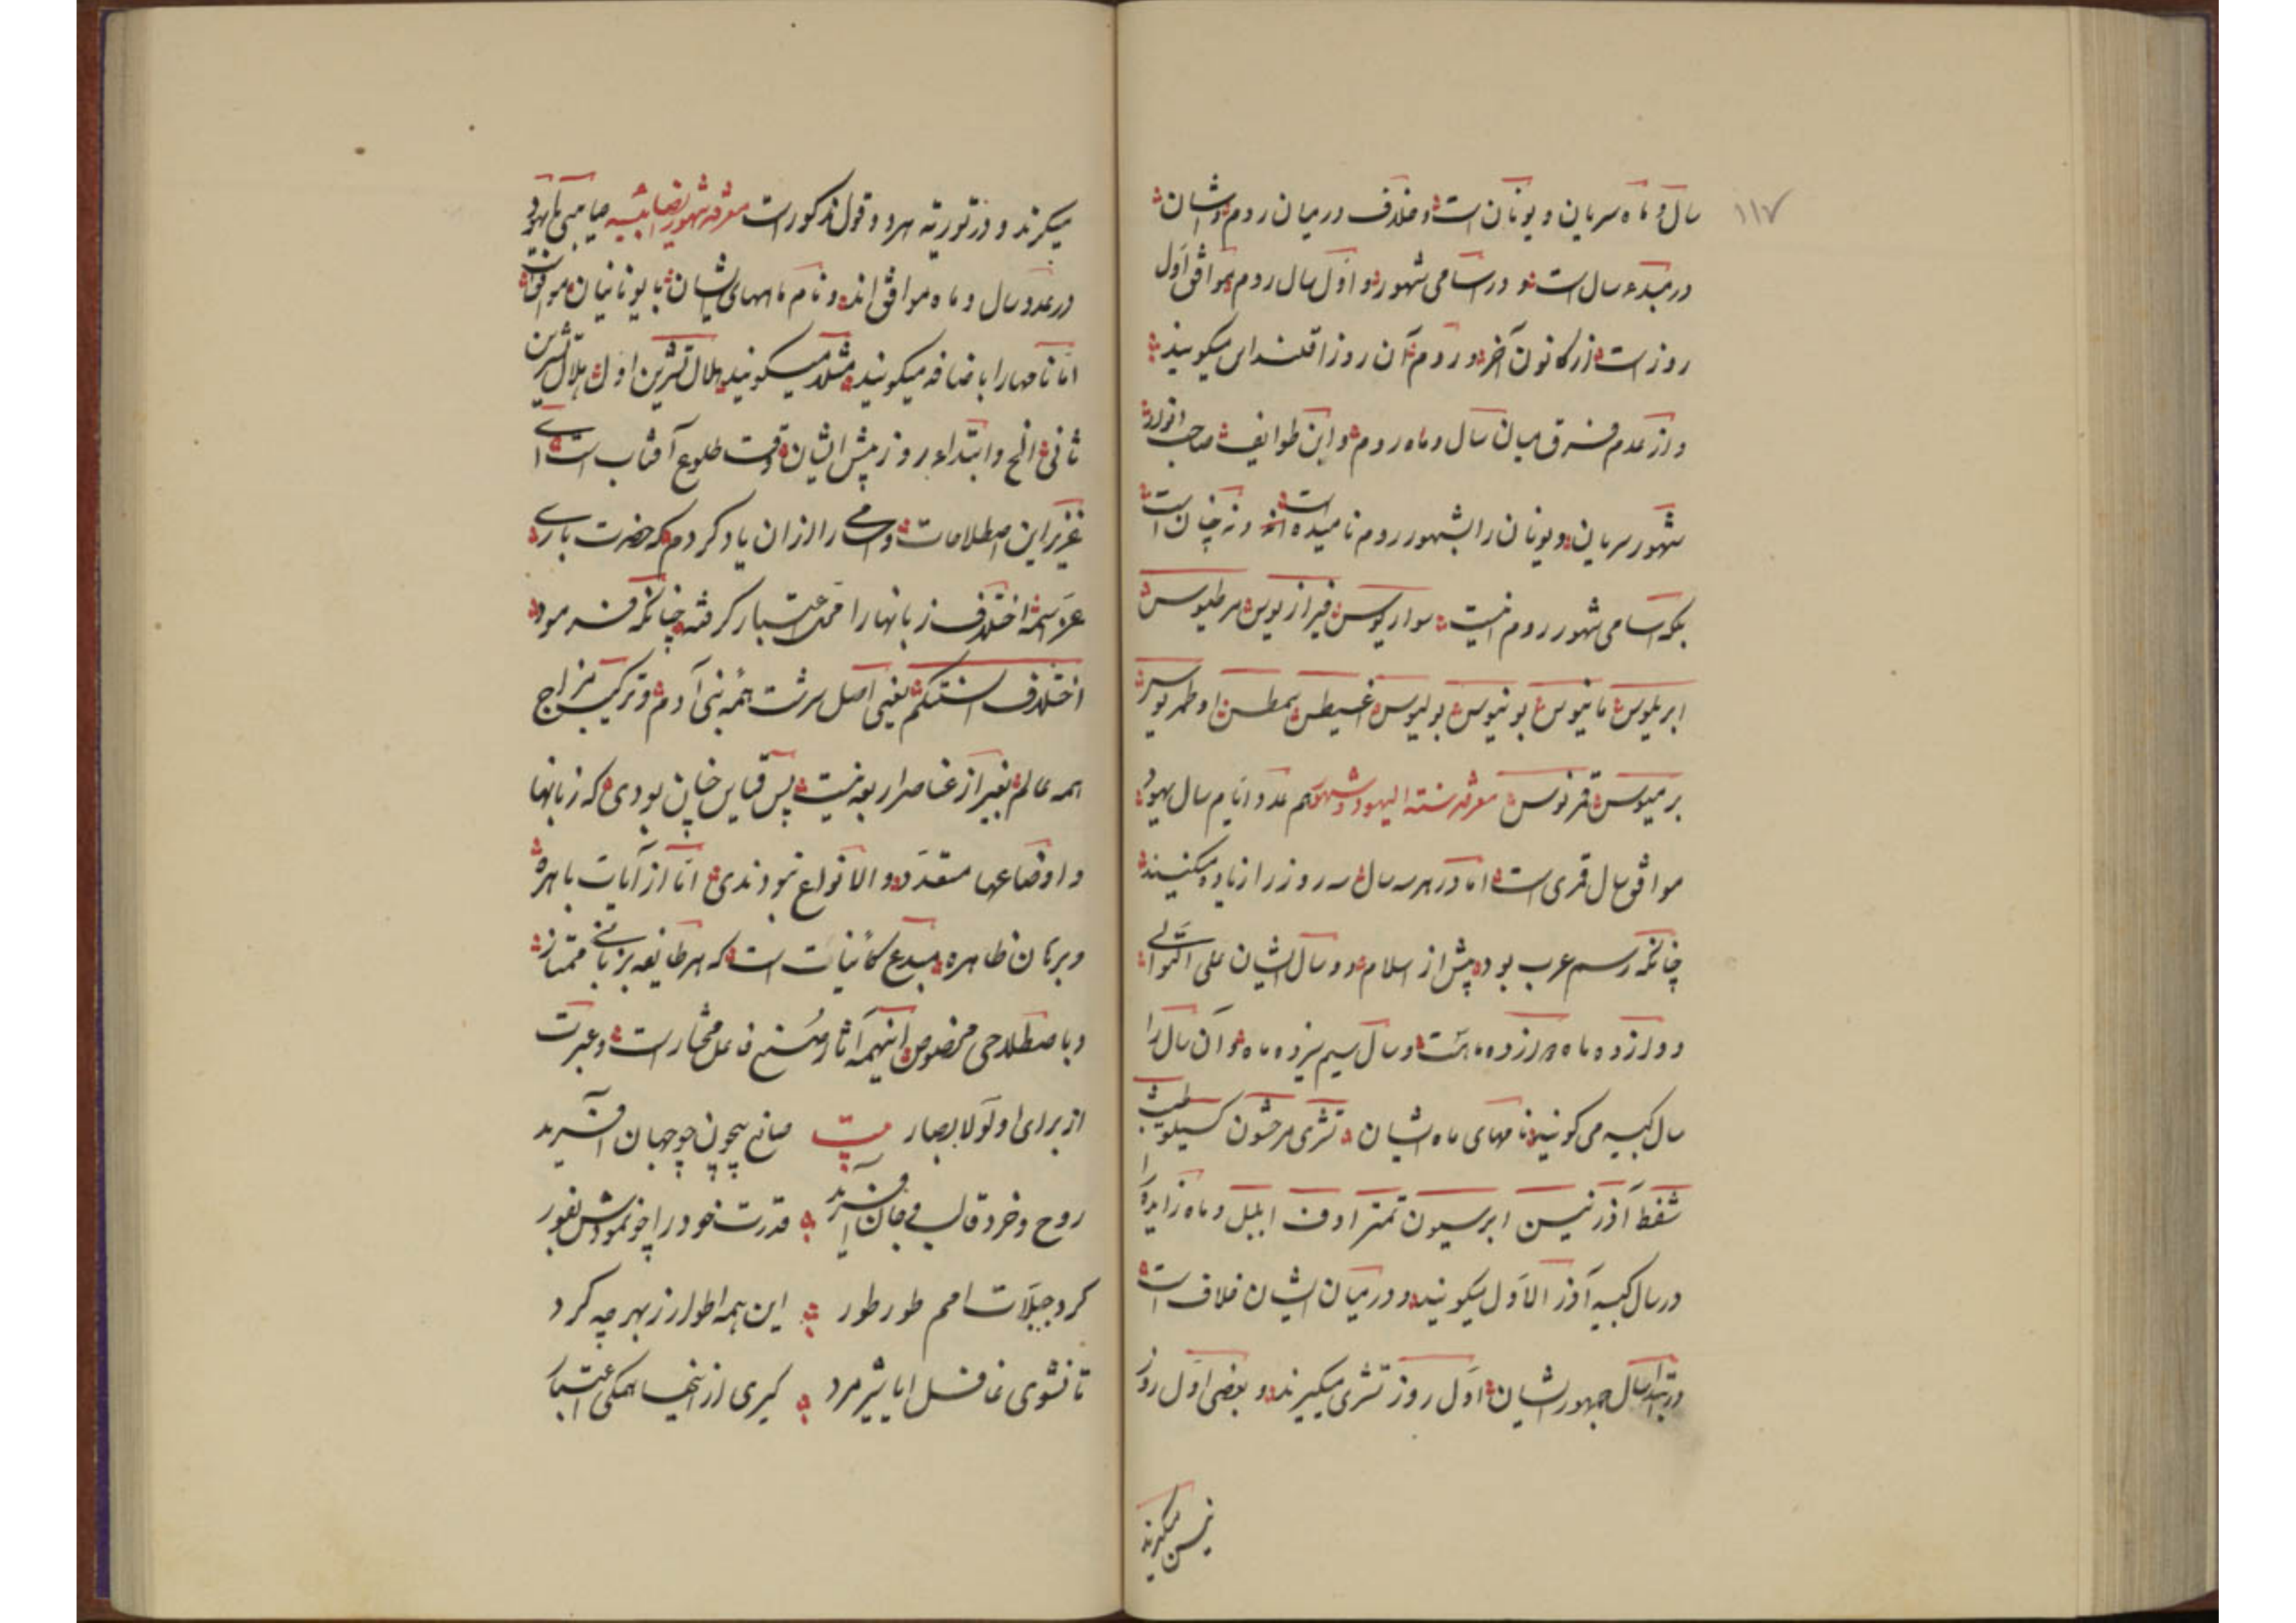 ۱۱۷
سال و ماه سریان و یونان است و خلاف در میان روم و ایشان
در مبدء سال است و در اسامی شهور و اول سال روم موافق اول
روز است از کانون آخر و روم آن روز را قلنداس میگویند
و از عدم فرق میان سال و ماه روم و این طوایف صاحب انوار
شهور سریان و یونان را بشهور روم نامیده است و نه چنان است
بلکه اسامی شهور روم اینست
مواریوس فیرازیوس مرطیوس
ابریلوس مانیوس یونیوس یولیوس اغسیطس سمطس اوطمریوس
برمیوس قرنوس معرفه سنة الیهود و شهورهم عدد ایام سال یهود
موافق سال قمری است اما در هر سه سال سه روز را زیاده میکنند
چنانکه رسم عرب بود پیش از اسلام و دو سال ایشان علی التوالی
دوازده ماه دوازده ماهست و سال سیم سیزده ماه و آن سال را
سال کبیسه می گویند نامهای ماه ایشان تشری مرحشون کسیلو طیبث
شفط آذر نیسن ایر سیون تمز اوف ایلل و ماه زایده را
در سال کبیسه آذر الاول میگویند و در میان ایشان خلاف است
در ابتداء سال جمهور ایشان اول روز تشری میگیرند و بعضی اول روز
نیسن میگیرند
میگیرند و در توریه هر دو قول مذکور است معرفه شهور الصابئیه صابئی با یهود
در عدد سال و ماه موافق اند و نام ماههای ایشان با یونانیان موافق است
اما نامها را باضافه میگویند مثلا میگویند هلال تشرین اول هلال تشرین
ثانی الخ و ابتداء روز پیش ایشان وقت طلوع آفتاب است ای
عزیز این اصطلاحات و اسامی را از ان یاد کردم که حضرت باری
عز اسمه اختلاف زبانها را محل اعتبار گرفته چنانکه فرمود
اختلاف السنتکم یعنی اصل سرشت همه بنی آدم و ترکیب مزاج
همه عالم بغیر از عناصر اربعه نیست پس قیاس چنان بودی که زبانها
و اوضاعها متعدد و الانواع نبودندی اما از آیات باهره
و برهان ظاهره مبدع کاینات است که هر طایفه بزبانی ممتاز
و باصطلاحی مخصوص اینهمه آثار صنع فاعل مختار است و عبرت
از برای اولو لابصار بیت صانع بیچون چو جهان آفرید
روح و خرد قالب و جان آفرید قدرت خود را چو نمودش بفور
کرد جبلات امم طور طور این همه اطوار ز بهر چه کرد
تا نشوی غافل ایا شیر مرد گیری از اینها همگی اعتبار